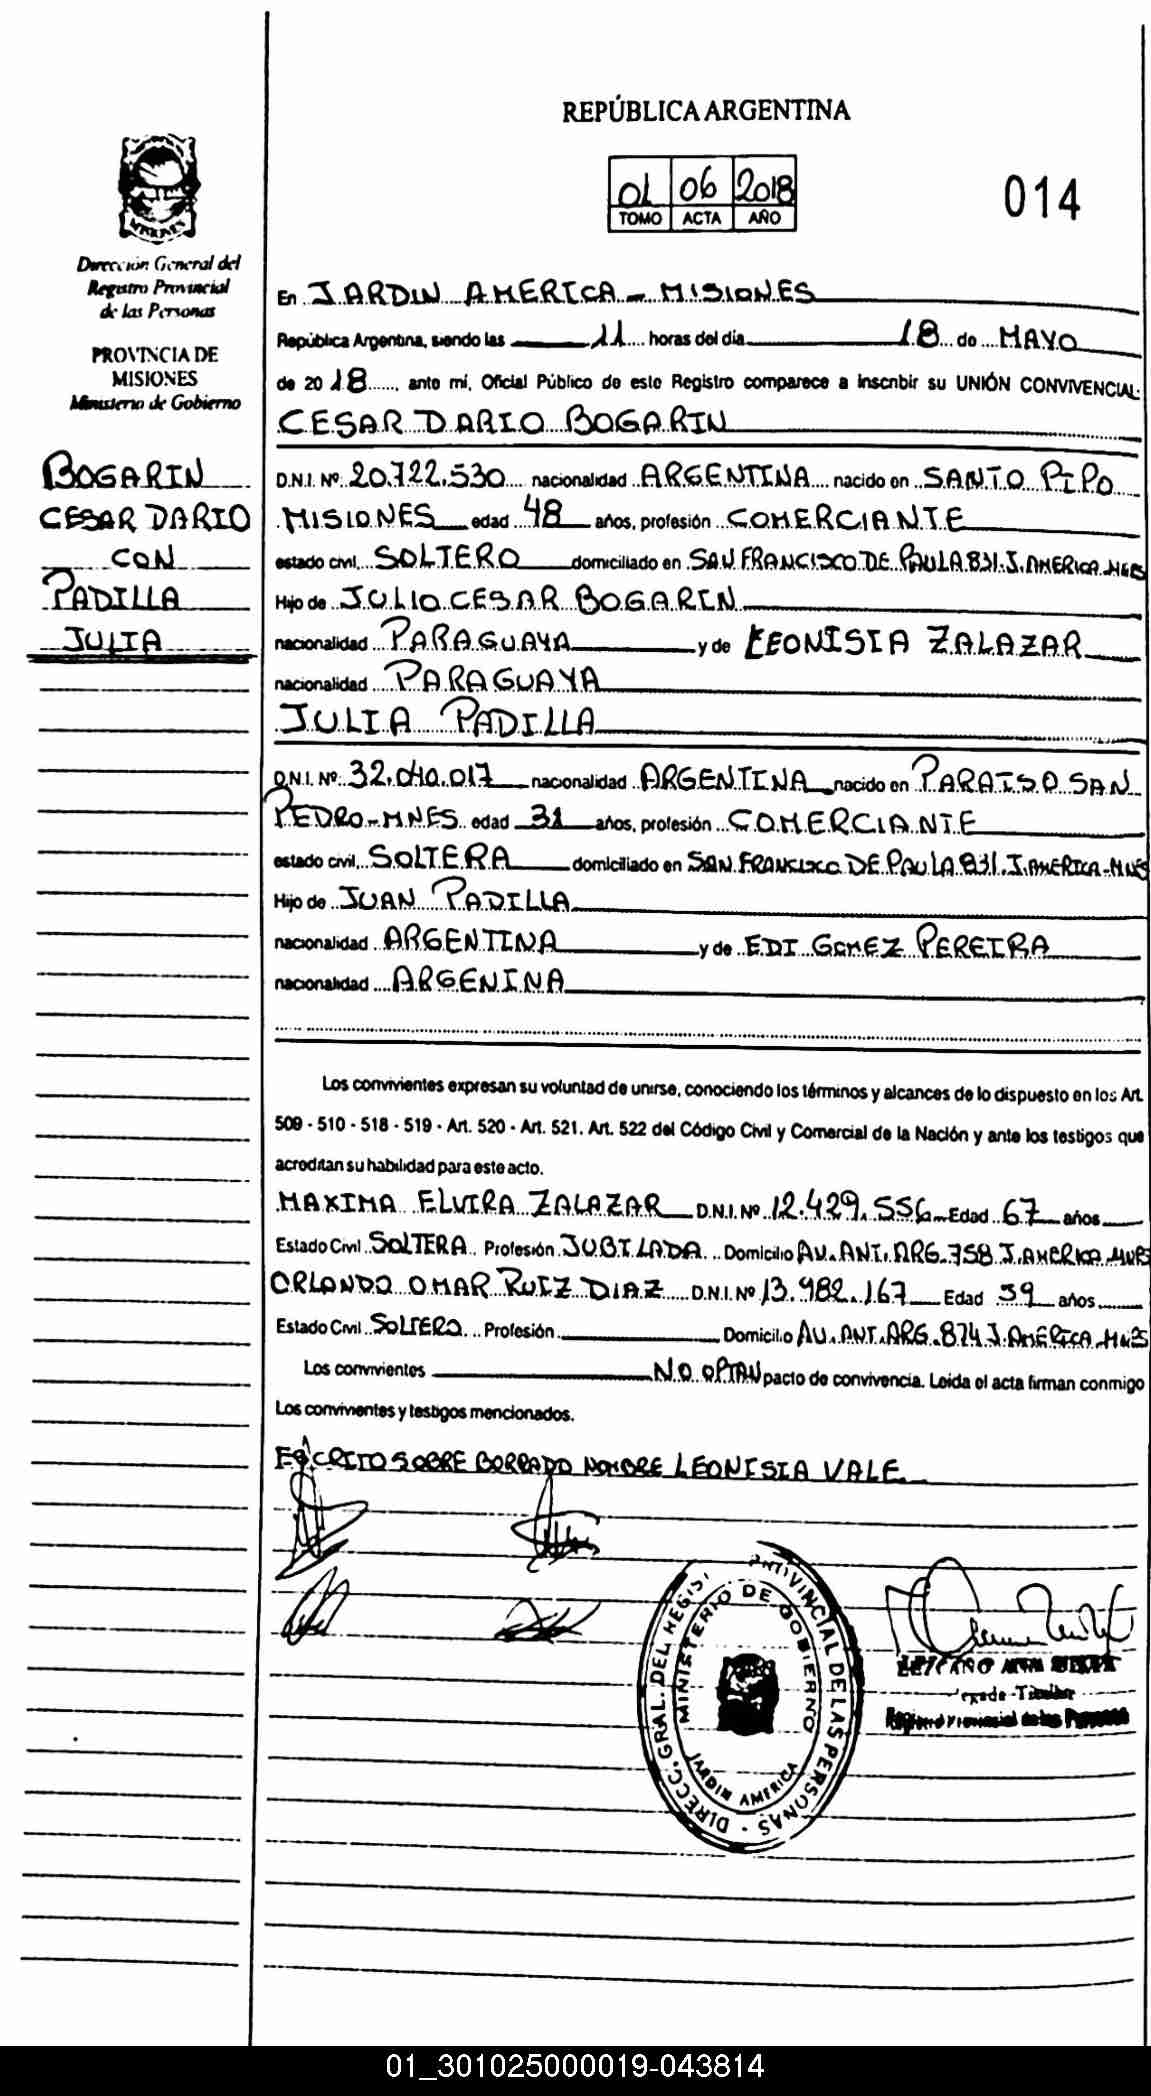 REPÚBLICA ARGENTINA
01 06 2018
TOMO ACTA AÑO
014
Dirección General del
Registro Provincial
de las Personas
PROVINCIA DE
MISIONES
Ministerio de Gobierno
BOGARIN
CESAR DARIO
CON
PADILLA
JULIA
En JARDIN AMERICA - MISIONES
República Argentina, siendo las 11 horas del día 18 de MAYO
de 2018, ante mí, Oficial Público de este Registro comparece a inscribir su UNIÓN CONVIVENCIAL:
CESAR DARIO BOGARIN
D.N.I. Nº 20.722.530 nacionalidad ARGENTINA nacido en SANTO PIPO
MISIONES edad 48 años, profesión COMERCIANTE
estado civil, SOLTERO domiciliado en SAN FRANCISCO DE PAULA 831. J. AMERICA MNES
Hijo de JULIO CESAR BOGARIN
nacionalidad PARAGUAYA y de LEONISIA ZALAZAR
nacionalidad PARAGUAYA
JULIA PADILLA
D.N.I. Nº 32.040.017 nacionalidad ARGENTINA nacido en PARAISO SAN
PEDRO-MNES edad 31 años, profesión COMERCIANTE
estado civil, SOLTERA domiciliado en SAN FRANCISCO DE PAULA 831. J. AMERICA-MNES
Hijo de JUAN PADILLA
nacionalidad ARGENTINA y de EDI GOMEZ PEREIRA
nacionalidad ARGENINA
Los convivientes expresan su voluntad de unirse, conociendo los términos y alcances de lo dispuesto en los Art.
509 - 510 - 518 - 519 - Art. 520 - Art. 521. Art. 522 del Código Civil y Comercial de la Nación y ante los testigos que
acreditan su habilidad para este acto.
MAXIMA ELVIRA ZALAZAR D.N.I. Nº 12.429.556 Edad 67 años
Estado Civil SOLTERA Profesión JUBILADA Domicilio AV. ANT. ARG. 758 J. AMERICA MNES
ORLANDO OMAR RUIZ DIAZ D.N.I. Nº 13.982.167 Edad 59 años
Estado Civil SOLTERO Profesión Domicilio AV. ANT. ARG. 874 J. AMERICA-MNES
Los convivientes NO OPTAN pacto de convivencia. Leida el acta firman conmigo
Los convivientes y testigos mencionados.
ESCRITO SOBRE BORRADO NOMBRE LEONISIA VALE
DIRECC. GRAL. DEL REGIST PROVINCIAL DE LAS PERSONAS
MINISTERIO DE GOBIERNO
JARDIN AMERICA
LEZCANO ANA
Titular
Registro Provincial de las Personas
01_301025000019-043814